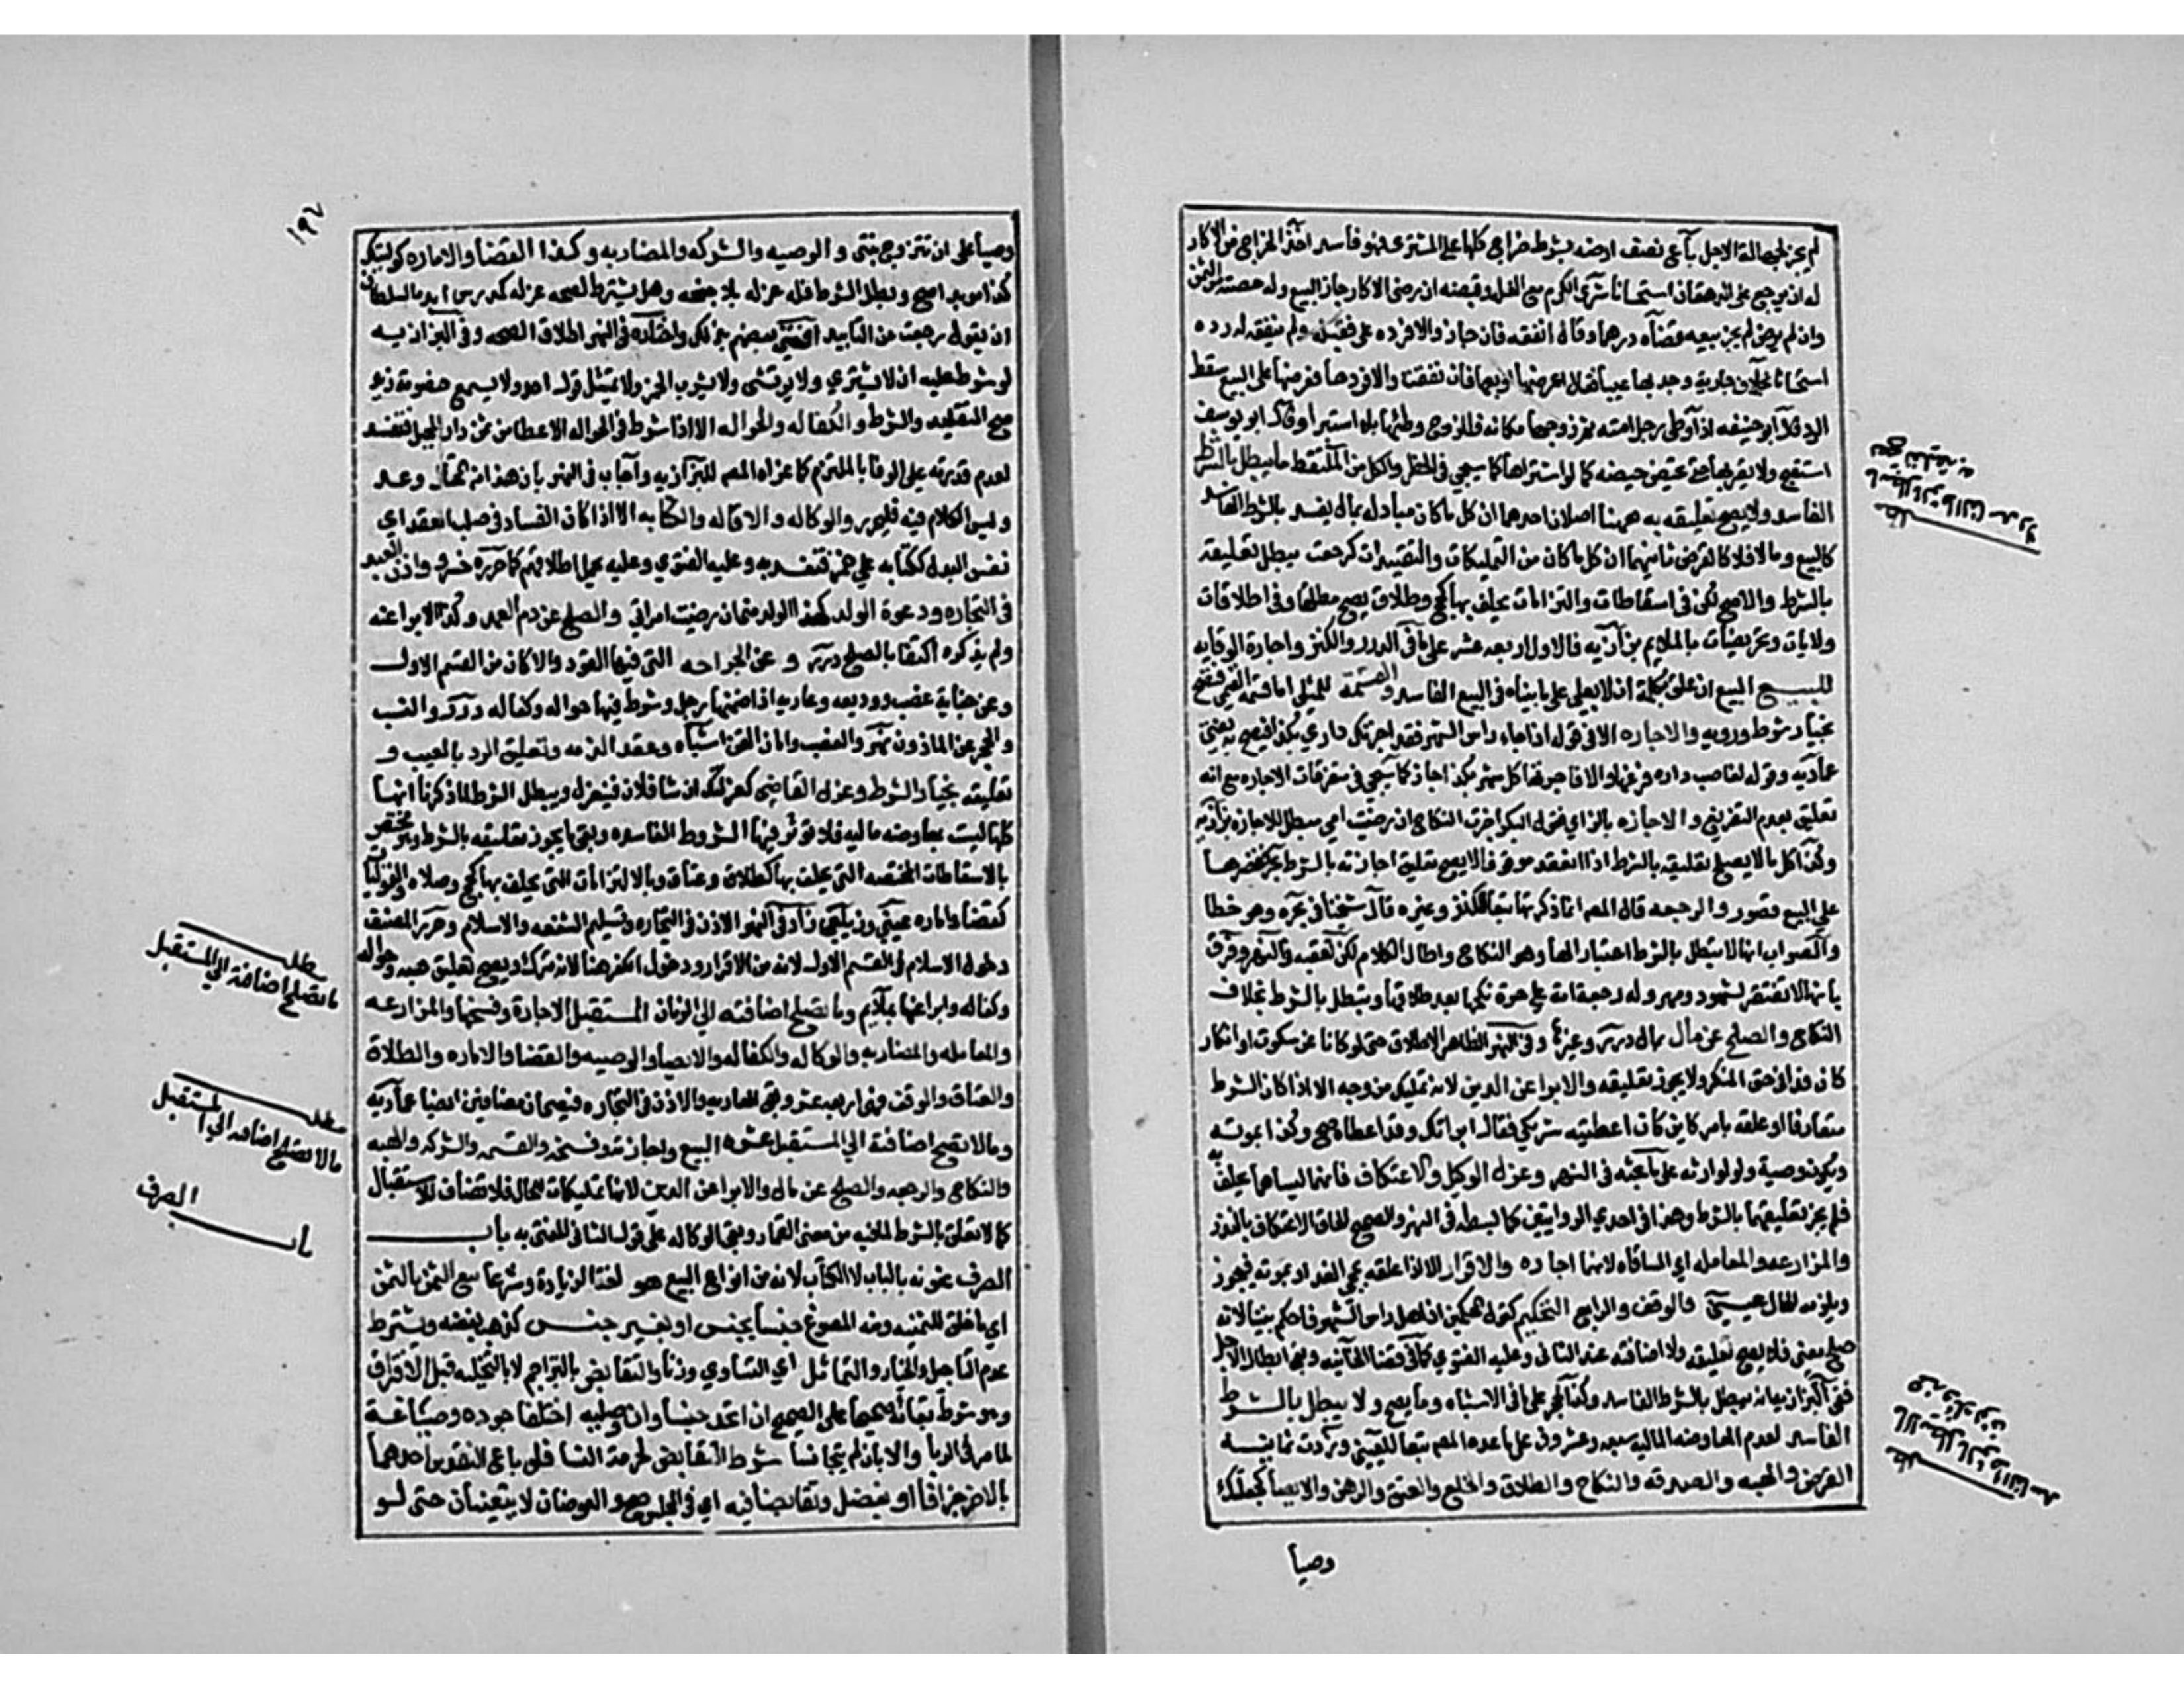 لم يجز لجهالة الاجل باع نصف ارضه بشرط خراج كلها على المشتري فهو فاسد اخذ الخراج من الاكار
له ان يرجع على الدهقان استحسانا شرى الكرم مع الغلة وقبضه ان رضى الاكار جاز البيع وله حصته من الثمن
وان لم يرض لم يجز بيعه قضاه درهما وقال انفقه فان جاز والا فرده على فقبله ولم ينفقه له رده
استحسانا بخلاف جارية وجد بها عيبا فقال اعرضها او بعها فان نفقت والا فردها فعرضها على البيع سقط
الرد قال ابو حنيفه اذا وطى رجل امته ثم زوجها مكانه فللزوج وطئها بلا استبرا وقال ابو يوسف
استقبح ولا يقربها حتى تحيض حيضه كما لو اشتراها كما سيجي في الحظر والكل من الملتقط ما يبطل بالشرط
الفاسد ولا يصح تعليقه به ههنا اصلان احدهما ان كل ما كان مبادله مال بمال يفسد بالشرط الفاسد
كالبيع وما لا فلا كالقرض ثانيهما ان كل ما كان من التمليكات والتقييدات كرجعت يبطل تعليقه
بالشرط والا صح لكن في اسقاطات والتزامات يحلف بها كحج وطلاق يصح مطلقا وفي اطلاقات
ولايات وتحريضات بالملايم بزازيه فالاول اربعه عشر على ما في الدرر والكنز واجارة الوقايه
للبيع المبيع ان علق بكلمة ان لا بعلى على ما بيناه في البيع الفاسد والقسمة للمثلى اما قسمة القيمى فتصح
بخيار شرط ورويه والاجاره الا في قوله اذا جاء راس الشهر فقد اجرتك داري بكذا فيصح به يفتى
عماديه وقوله لغاصب داره فرغها والا فاجرتها كل شهر بكذا جاز كما سيجي في متفرقات الاجاره مع انه
تعليق بعدم التفريغ والاجازه بالزاي فقول البكر اجزت النكاح ان رضيت امي مبطل للاجازه بزازيه
وكذا كل ما لا يصح تعليقه بالشرط اذا انعقد موقوفا لا يصح تعليق اجازته بالشرط بحر فقصرها
على البيع قصور والرجعه قال المصـ انما ذكرتها تبعا للكنز وغيره قال شيخنا في بحره وهو خطا
والصواب انها لا تبطل بالشرط اعتبارا لها وهو النكاح واطال الكلام لكن تعقبه في النهر وفرق
بانها لا تفتقر لشهود ومهر وله رجعة امة على حرة نكحها بعد طلاقها وتبطل بالشرط بخلاف
النكاح والصلح عن مال بمال درر وغيرها وفي النهر الظاهر الاطلاق حتى لو كانا عن سكوت او انكار
كان فدا في حق المنكر ولا يجوز تعليقه والابرا عن الدين لانه تمليك من وجه الا اذا كان الشرط
متعارفا او علقه بامر كاين كان اعطيته شريكي فقال ابراتك وقد اعطاه صح وكذا بموته
ويكون وصية ولو لوارثه على ما بحثه في النهر وعزل الوكيل والاعتكاف فانهما ليسا مما يحلف به
فلم يجز تعليقهما بالشرط وهذا في احدي الروايتين كما بسطه في النهر والصحيح الحاق الاعتكاف بالنذر
والمزارعه والمعامله اي المساقاه لانهما اجاره والاقرار الا اذا علقه بمجي الغد او بموته فيجوز
ويلزمه للحال عيني والوقف والرابع التحكيم كقول المحكمين اذا هل راس الشهر فاحكم بيننا لانه
صلح معنى فلا يصح تعليقه ولا اضافته عند الثاني وعليه الفتوي كما في قضا الخانيه وبقى ابطال الاجل
ففي البزازيه انه يبطل بالشرط الفاسد وكذا الحجر على ما في الاشباه وما يصح ولا يبطل بالشرط
الفاسد لعدم المعاوضه الماليه سبعه وعشرون على ما عده المصـ تبعا للعيني وزدت ثمانيه
القرض والهبه والصدقه والنكاح والطلاق والخلع والعتق والرهن والايصا كجعلتك
وصيا
ما يبطل بالشرط الفاسد ولا
يصح تعليقه به
مطلـ
ما لا يبطل بالشرط الفاسد
١٩٢
وصيا على ان تتزوج بنتي والوصيه والشركه والمضاربه وكذا القضا والاماره كوليتك
كذا موبدا صح وبطل الشرط فله عزله بلا جنحه وهل يشترط لصحه عزله كمدرس ابده السلطان
ان يقول رجعت عن التابيد افتى بعضهم بذلك واختار في النهر اطلاق الصحه وفي البزازيه
لو شرط عليه ان لا يشتري ولا يرتشى ولا يشرب الخمر ولا يمتثل قول احد ولا يسمع خصومة زيد
صح التقليد والشرط والكفاله والحواله الا اذا شرط في الحواله الاعطا من ثمن دار المحيل فتفسد
لعدم قدرته على الوفا بالملتزم كما عزاه المصـ للبزازيه واجاب في النهر بان هذا من المحتال وعد
وليس الكلام فيه فليحرر والوكاله والاقاله والكتابه الا اذا كان الفساد في صلب العقد اي
نفس البدل ككتابه على خمر فتفسد به وعليه الفتوي وعليه يحمل اطلاقهم كما حرره خسرو واذن العبد
في التجاره ودعوة الولد كهذا الولد مني ان رضيت امراتي والصلح عن دم العمد وكذا الابرا عنه
ولم يذكره اكتفا بالصلح درر وعن الجراحه التي فيها القود والا كان من القسم الاول
وعن جناية غصب ووديعه وعاريه اذا ضمنها رجل وشرط فيها حواله وكفاله درر والنسب
والحجر عن الماذون نهر والغصب وامان القن اشباه وعقد الذمه وتعليق الرد بالعيب و
تعليقه بخيار الشرط وعزل القاضي كعزلتك ان شا فلان فينعزل ويبطل الشرط لما ذكرنا انها
كلها ليست بمعاوضه ماليه فلا توثر فيها الشروط الفاسده وبقى ما يجوز تعليقه بالشرط وهو مختص
بالاسقاطات المحضه التي يحلف بها كطلاق وعتاق وبالالتزامات التي يحلف بها كحج وصلاه والتوليات
كقضا واماره عيني وزيلعي زاد في النهر الاذن في التجاره وتسليم الشفعه والاسلام وحرر المصنف
دخول الاسلام في القسم الاول لانه من الاقرار ودخول الكفر هنا لانه ترك ويصح تعليق هبه وحواله
وكفاله وابرا عنها بملايم وما تصلح اضافته الى الزمان المستقبل الاجارة وفسخها والمزارعه
والمعامله والمضاربه والوكاله والكفاله والايصا والوصيه والقضا والاماره والطلاق
والعتاق والوقف فهى اربعه عشر وبقى العاريه والاذن في التجاره فيصحان مضافين ايضا عماديه
وما لا تصح اضافته الي المستقبل عشره البيع واجازته وفسخه والقسمه والشركه والهبه
والنكاح والرجعه والصلح عن مال والابرا عن الدين لانها تمليكات للحال فلا تضاف للاستقبال
كما لا تعلق بالشرط لما فيه من معنى القمار وبقى الوكاله على قول الثاني المفتى به باب
الصرف عنونه بالباب لا الكتاب لانه من انواع البيع هو لغة الزيادة وشرعا بيع الثمن بالثمن
اي ما خلق للثمنيه ومنه المصوغ جنسا بجنس او بغير جنس كذهب بفضه ويشترط
عدم التاجيل والخيار والتماثل اي التساوي وزنا والتقابض بالبراجم لا بالتخليه قبل الافتراق
وهو شرط بقائه صحيحا على الصحيح ان اتحد جنسا وان وصليه اختلفا جوده وصياغة
لما مر في الربا والا بان لم يتجانسا شرط التقابض لحرمة النسا فلو باع النقدين احدهما
بالاخر جزافا او بفضل وتقابضا فيه اي في المجلس صح والعوضان لا يتعينان حتى لو
مطلـ
ما تصلح اضافته الي المستقبل
مطلـ
ما لا تصلح اضافته الي المستقبل
باب الصرف